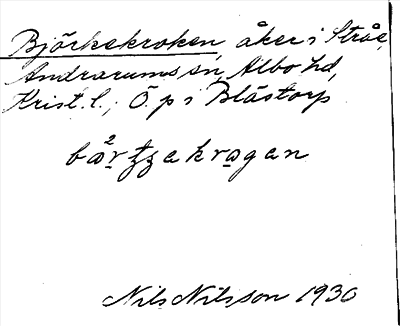 Björkekroken, åker i Stråe,
Andrarums sn, Albo hd,
Krist. l., Ö. p s Blåstorp
Nils Nilsson 1930